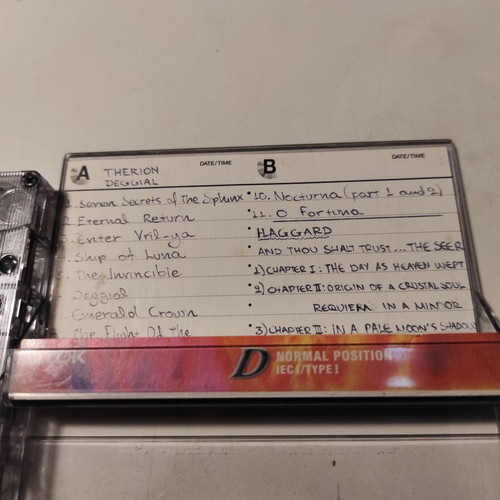 A DATE/TIME
THERION
DEGGIAL
Seven Secrets of the Sphinx
Eternal Return
Enter Vril-ya
Ship of Luna
The Invincible
Deggial
Emerald Crown
The Flight Of The
B DATE/TIME
10. Nocturna (part 1 and 2)
11. O Fortuna
HAGGARD
AND THOU SHALT TRUST... THE SEER
1) CHAPTER I: THE DAY AS HEAVEN WEPT
2) CHAPTER II: ORIGIN OF A CRYSTAL SOUL
REQUIEM IN A MINOR
3) CHAPTER III: IN A PALE MOON'S SHADOW
TDK D NORMAL POSITION
IEC I/TYPE I